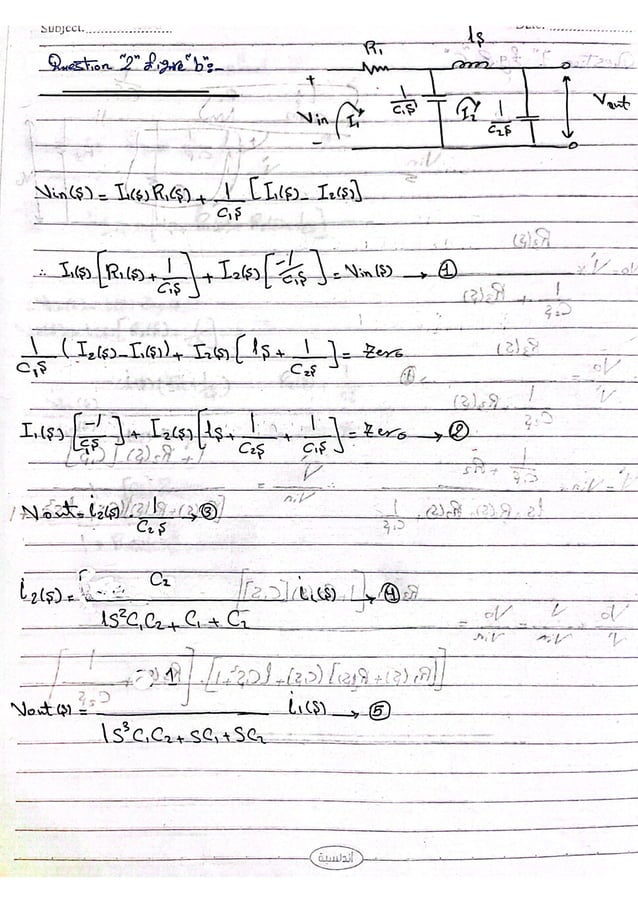 Subject:
Date:
Question "2" figure "b":-
R₁ ls
+ 1/C₁s 1/C₂s
Vin I₁ I₂ Vout
-
Vin(s) = I₁(s) R₁(s) + 1/C₁s [I₁(s) - I₂(s)]
∴ I₁(s) [R₁(s) + 1/C₁s] + I₂(s) [-1/C₁s] = Vin(s) → ①
1/C₁s (I₂(s) - I₁(s)) + I₂(s) [ls + 1/C₂s] = Zero
I₁(s) [-1/C₁s] + I₂(s) [ls + 1/C₂s + 1/C₁s] = Zero → ②
Vout = i₂(s) · 1/C₂s → ③
i₂(s) = C₂ / (lS²C₁C₂ + C₁ + C₂) i₁(s) → ④
Vout(s) = 1 / (lS³C₁C₂ + SC₁ + SC₂) i₁(s) → ⑤
أندلسية